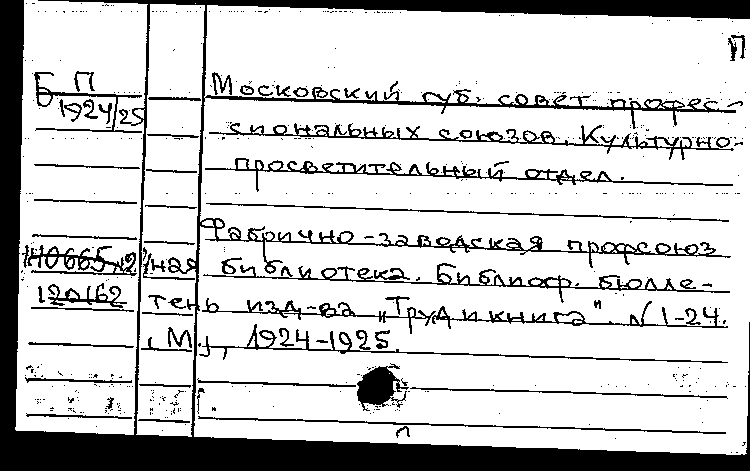 П
Б П
1924/25
Московский губ. совет профес-
сиональных союзов. Культурно-
просветительный отдел.
Фабрично-заводская профсоюз
ная библиотека. Библиогр. бюлле-
120162 тень изд-ва „Труд и книга". N 1-24.
М., 1924-1925.